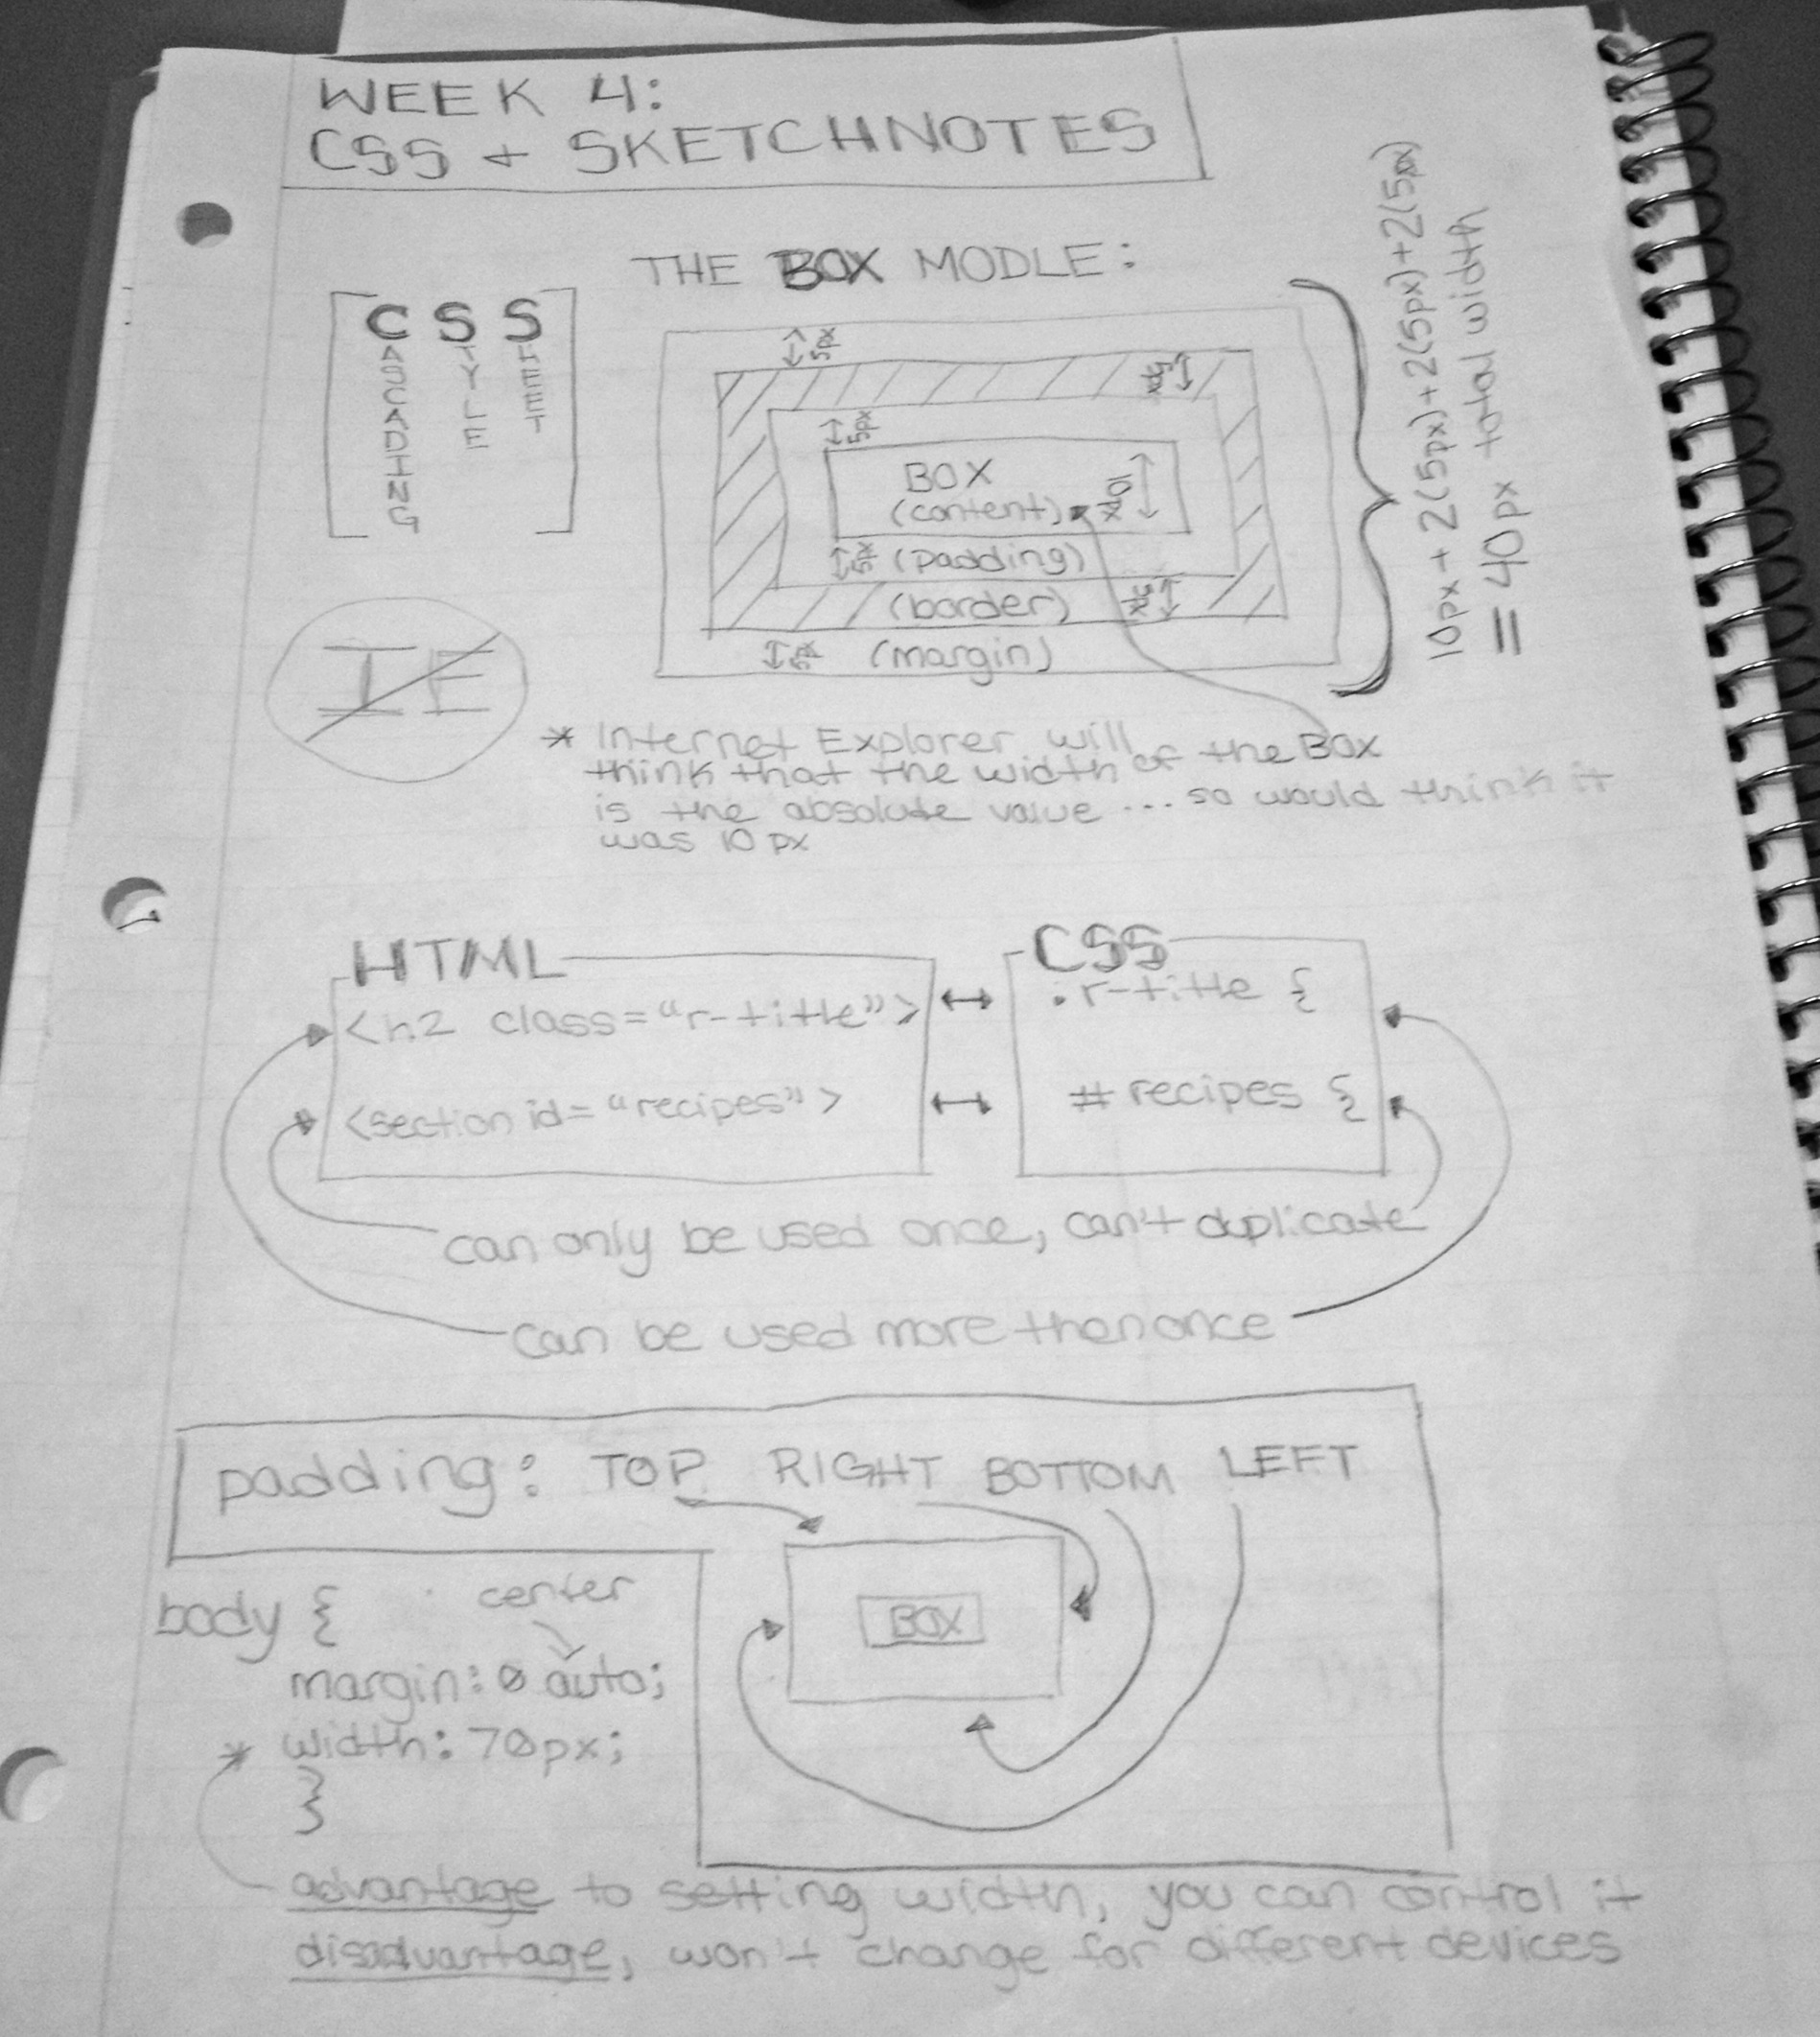 WEEK 4:
CSS + SKETCHNOTES
THE BOX MODLE:
CSS
CASCADING
STYLE
SHEET
5px
5px
5px
BOX
(content)
10px
5px
(padding)
(border)
5px
5px
(margin)
10px + 2(5px) + 2(5px) + 2(5px)
= 40px total width
IE
* Internet Explorer will
think that the width of the BOX
is the absolute value ... so would think it
was 10 px
HTML
<h2 class="r-title">
<section id="recipes">
CSS
.r-title {
#recipes {
can only be used once, can't duplicate
can be used more then once
padding: TOP RIGHT BOTTOM LEFT
BOX
body {
center
margin: 0 auto;
* width: 70px;
}
advantage to setting width, you can control it
disadvantage, won't change for different devices